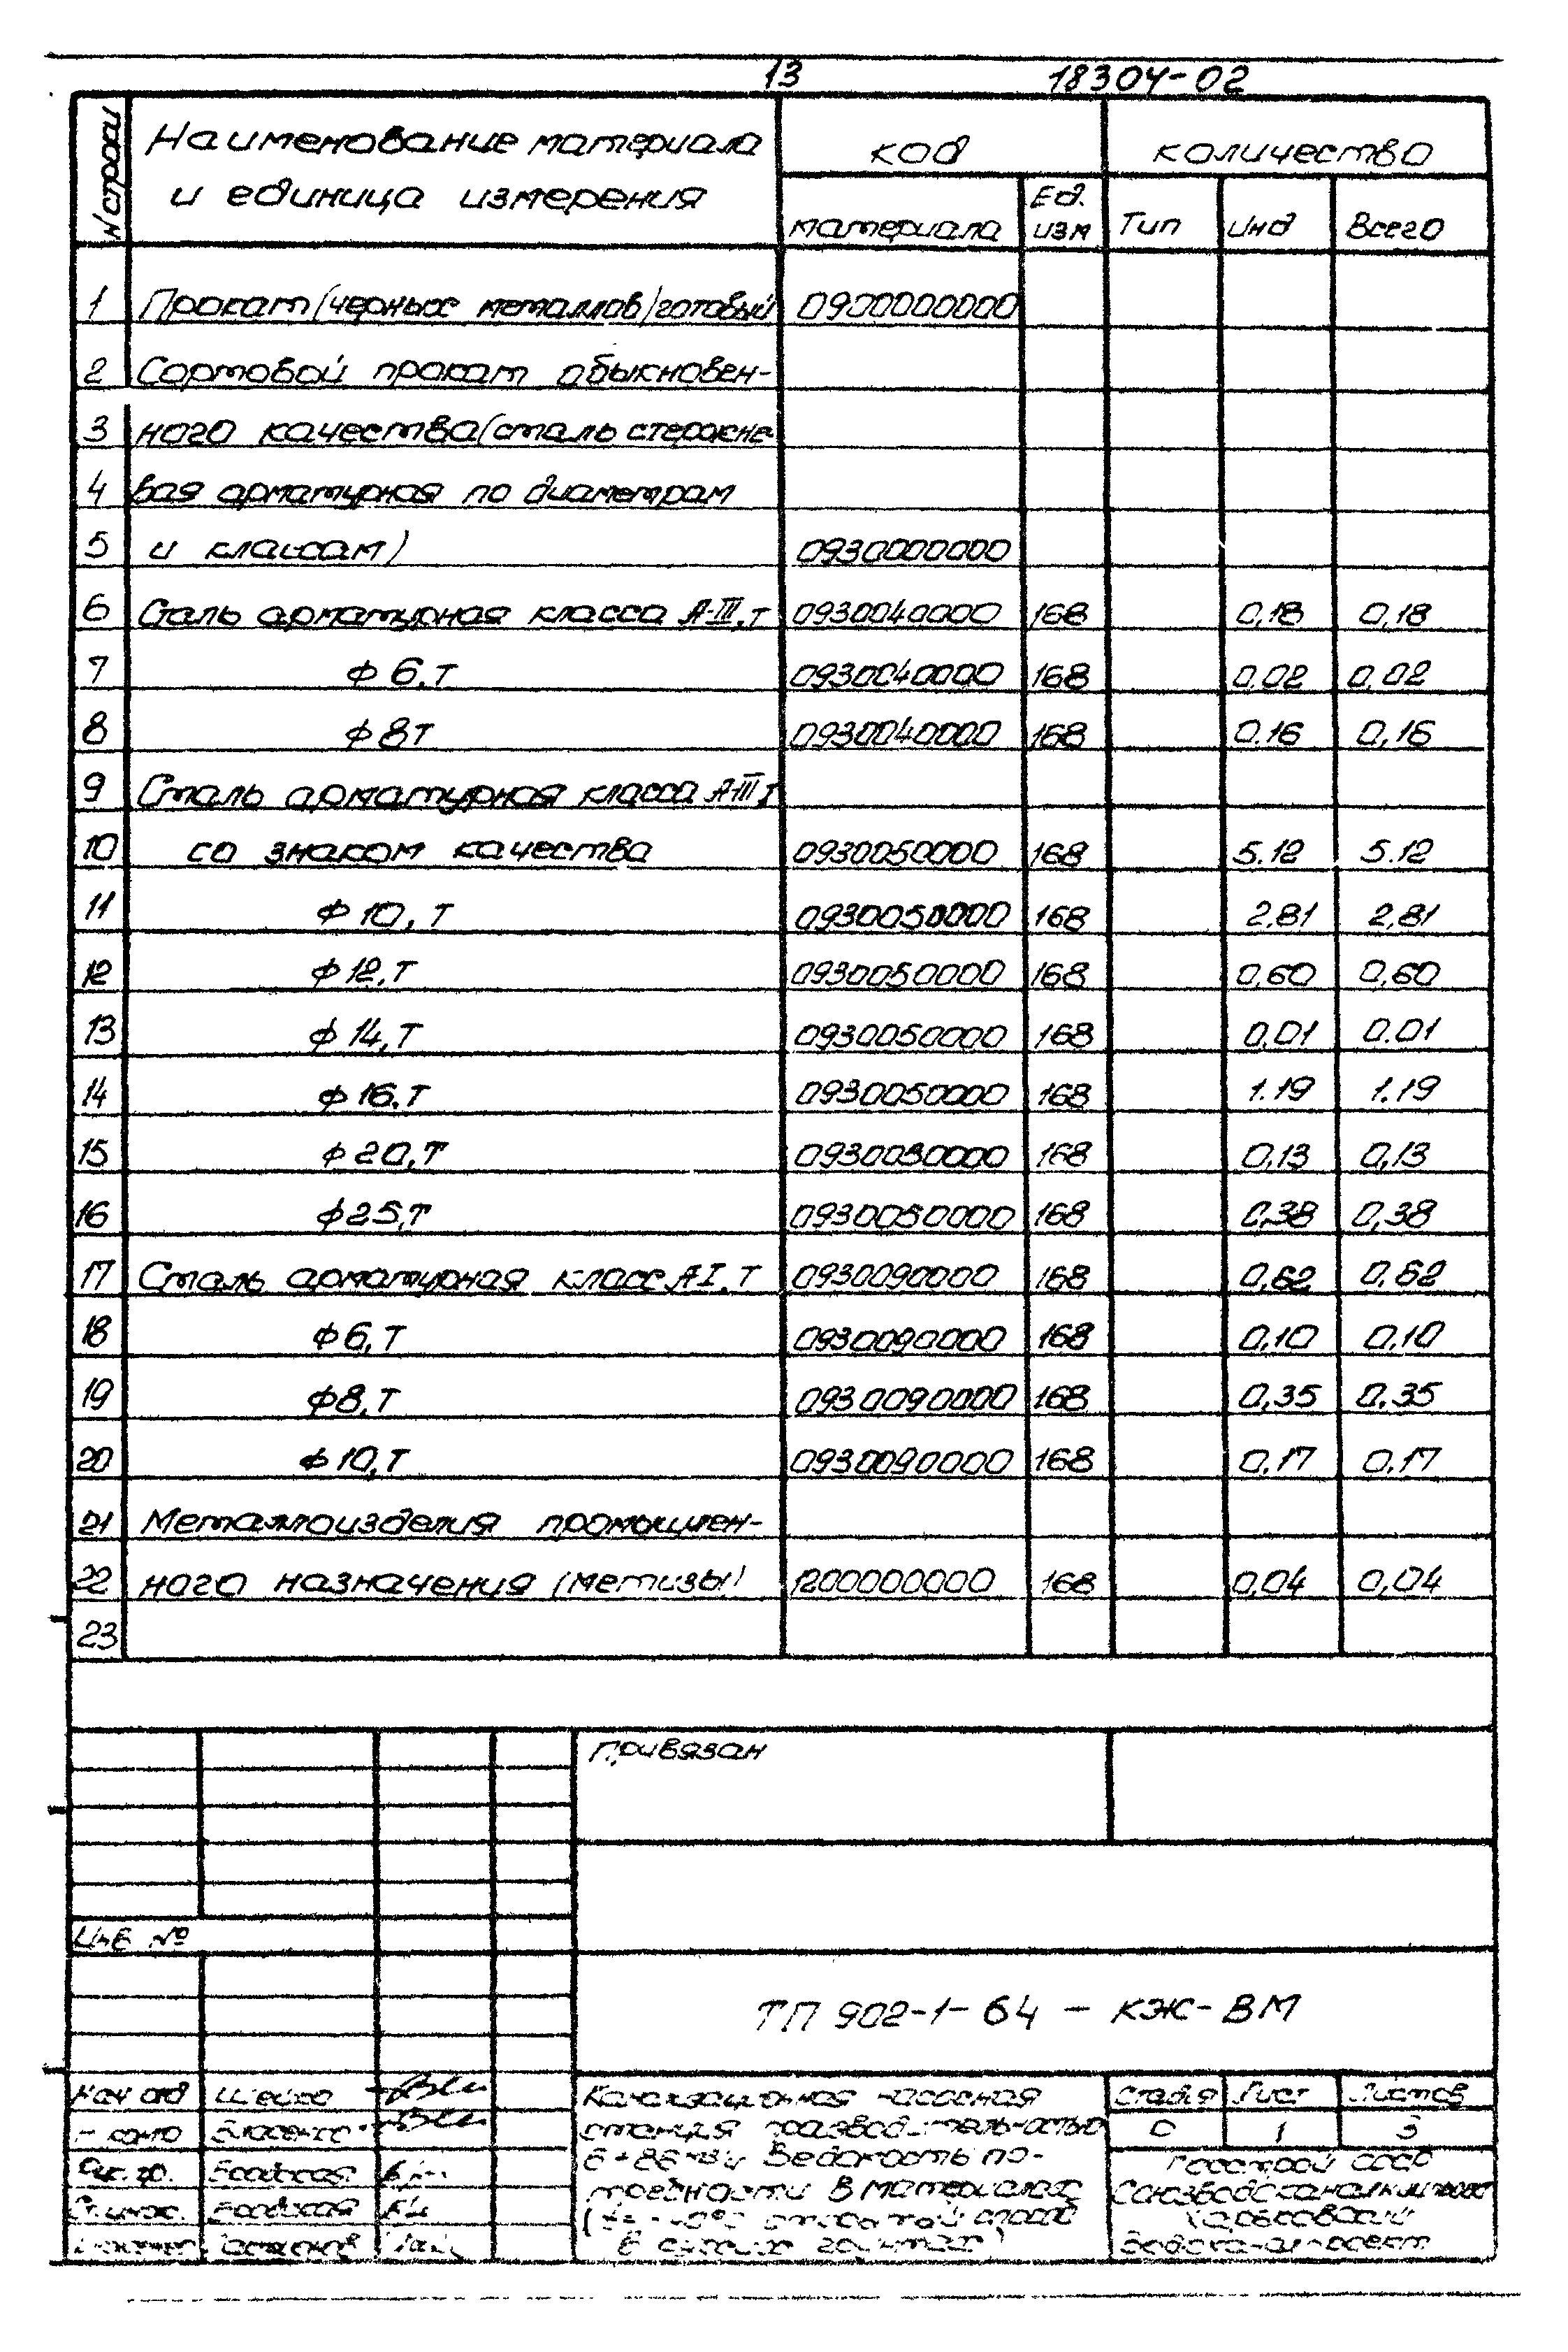 13 18304-02
N строки Наименование материала и единица измерения код количество
материала Ед. изм Тип Инд Всего
1 Прокат (черных металлов) готовый 0900000000
2 Сортовой прокат обыкновен-
3 ного качества (сталь стержне-
4 вая арматурная по диаметрам
5 и классам) 0930000000
6 Сталь арматурная класса А-III, т 0930040000 168 0,18 0,18
7 ф 6, т 0930040000 168 0,02 0,02
8 ф 8 т 0930040000 168 0.16 0,16
9 Сталь арматурная класса А-III
10 со знаком качества 0930050000 168 5.12 5.12
11 ф 10, т 0930050000 168 2.81 2,81
12 ф 12, т 0930050000 168 0,60 0,60
13 ф 14, т 0930050000 168 0,01 0.01
14 ф 16. т 0930050000 168 1.19 1.19
15 ф 20, т 0930050000 168 0,13 0,13
16 ф 25, т 0930050000 168 0,38 0,38
17 Сталь арматурная класс А I, т 0930090000 168 0,62 0,62
18 ф 6, т 0930090000 168 0,10 0,10
19 ф 8, т 0930090000 168 0,35 0,35
20 ф 10, т 0930090000 168 0,17 0,17
21 Металлоизделия промышлен-
22 ного назначения (метизы) 1200000000 168 0,04 0,04
23
Привязан
Инв №
ТП 902-1-64 - КЖ-ВМ
Нач отд Шейко
Канализационная насосная
станция производительностью
Ведомость по-
требности в материалах
Стадия Лист Листов
1 3
Госстрой СССР
Союзводоканалниипроект
Харьковский
Водоканалпроект